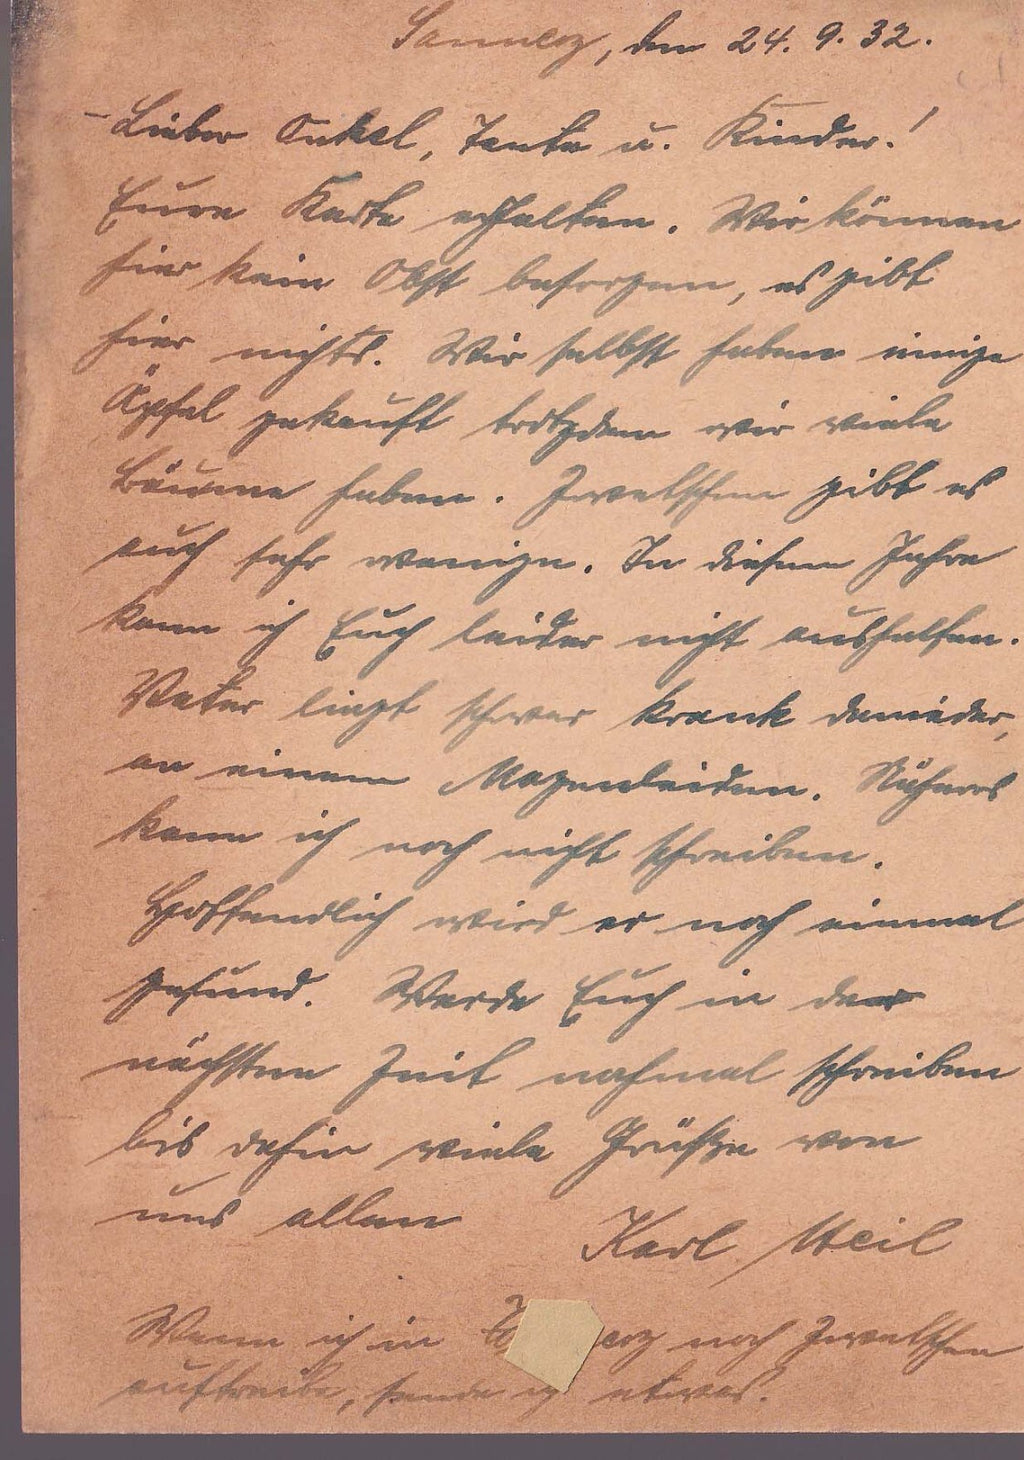 Sannerz, den 24. 9. 32.
Lieber Onkel, Tante u. Kinder!
Eure Karte erhalten. Wir können
hier kein Obst besorgen, es gibt
hier nichts. Wir selbst haben einige
Äpfel gekauft trotzdem wir viele
Bäume haben. Zwetschen gibt es
auch sehr wenige. In diesem Jahre
kann ich Euch leider nicht aushelfen.
Vater liegt schwer krank danieder,
an einem Magenleiden. Näheres
kann ich noch nicht schreiben.
Hoffendlich wird er noch einmal
gesund. Werde Euch in der
nächsten Zeit nochmal schreiben
bis dahin viele Grüße von
uns allen
Karl Weil
Wenn ich in noch Zwetschen
auftreibe, sende ich etwas.